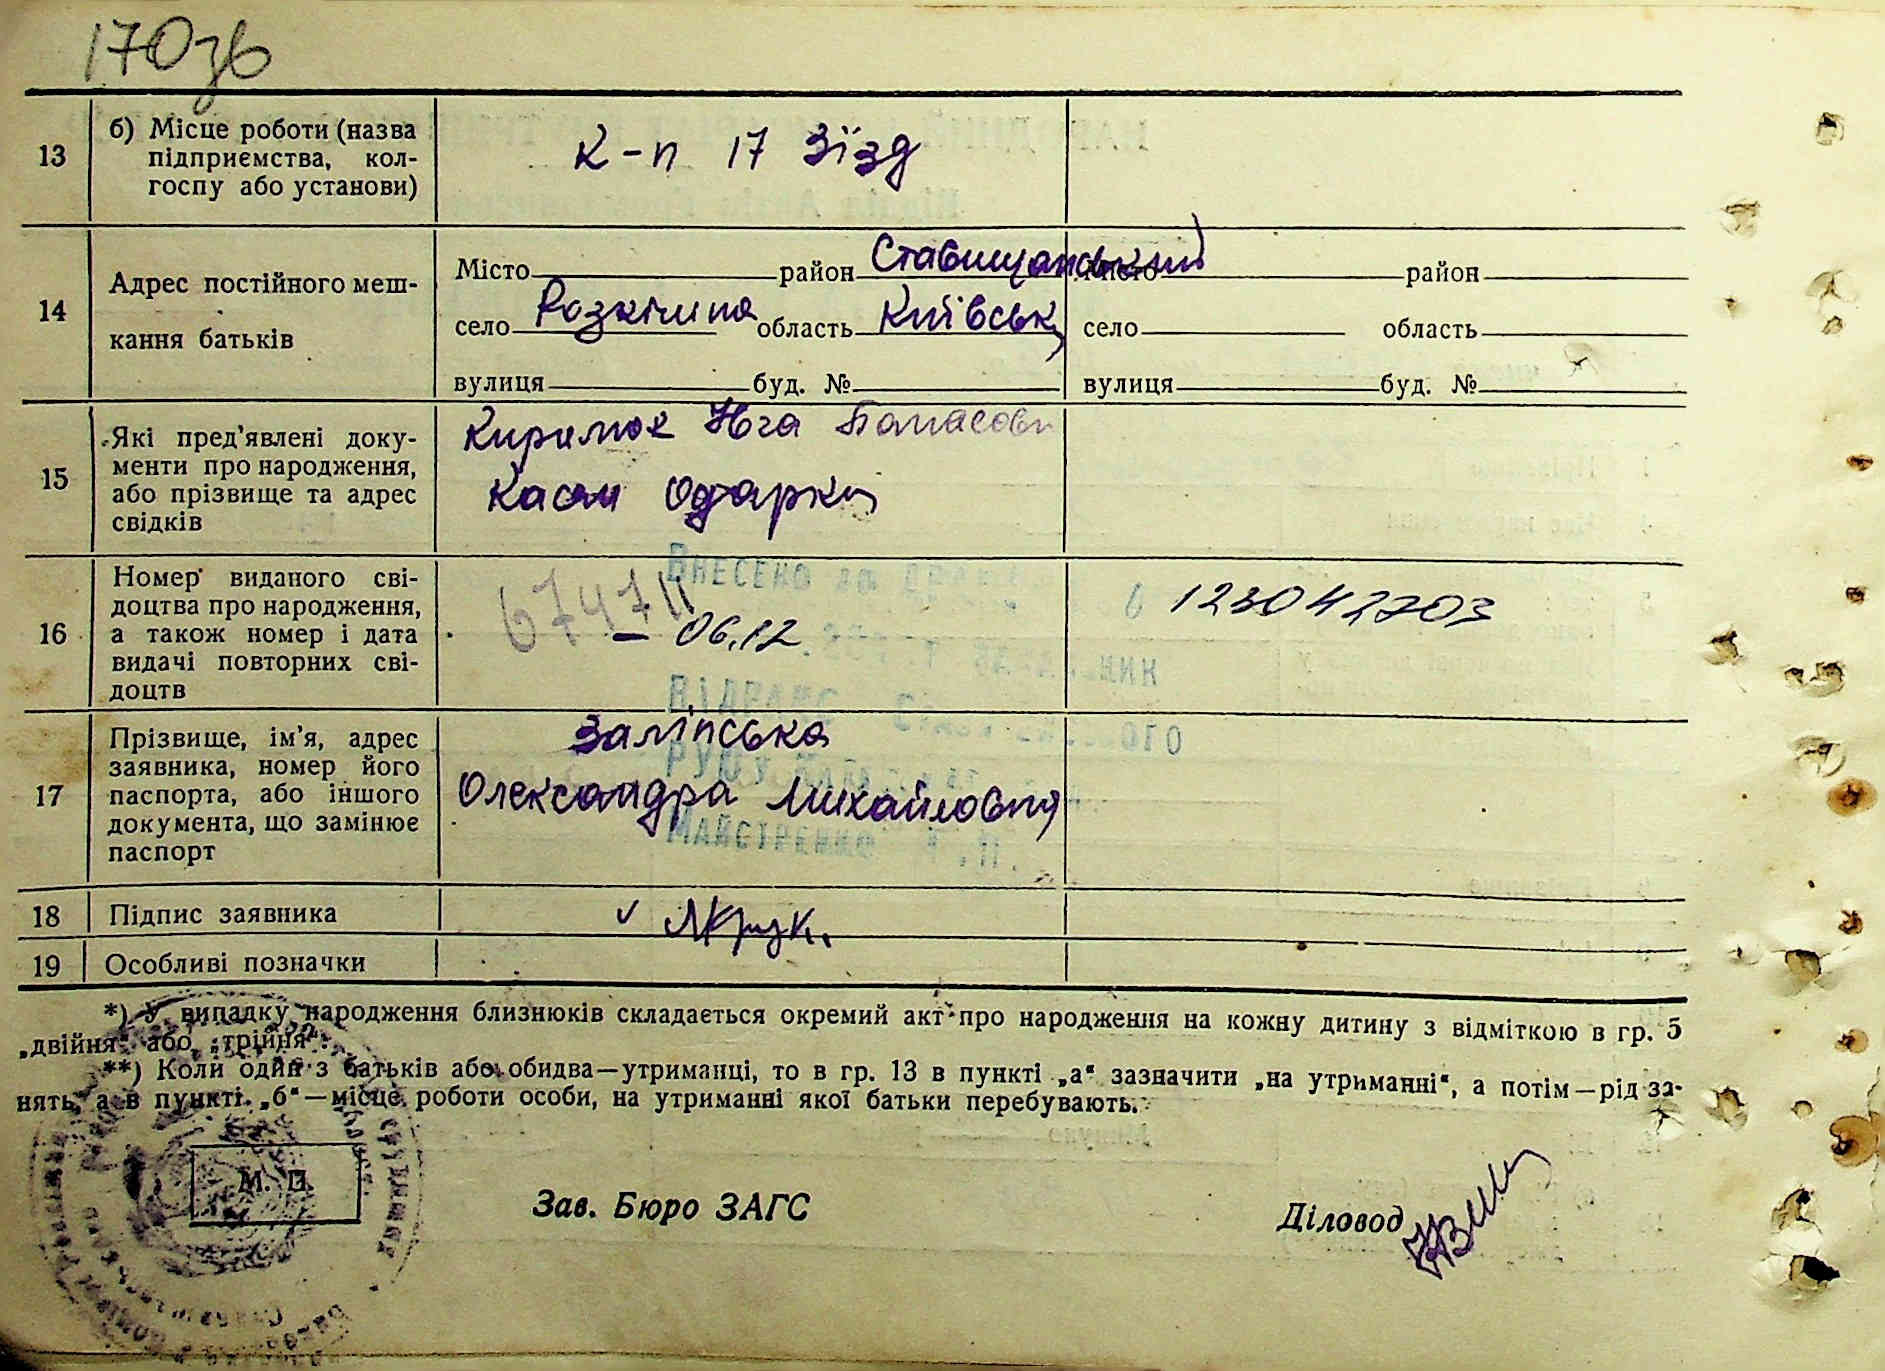 170зв
13
б) Місце роботи (назва
підприємства, кол-
госпу або установи)
к-п 17 Зїзд
14
Адрес постійного меш-
кання батьків
Місто район Ставищанський район
село Розкішна область Київськ село область
вулиця буд. № вулиця буд. №
15
Які пред'явлені доку-
менти про народження,
або прізвище та адрес
свідків
Одарка
16
Номер виданого сві-
доцтва про народження,
а також номер і дата
видачі повторних сві-
доцтв
6747
– 06.12
123042703
Внесено до
17
Прізвище, ім'я, адрес
заявника, номер його
паспорта, або іншого
документа, що замінює
паспорт
Заліпська
Олександра Михайловна
Майстренко
18 Підпис заявника
19 Особливі позначки
*) У випадку народження близнюків складається окремий акт про народження на кожну дитину з відміткою в гр. 5
„двійня“ або „трійня“.
**) Коли один з батьків або обидва—утриманці, то в гр. 13 в пункті „а“ зазначити „на утриманні“, а потім—рід за-
нять, а в пункті „б“—місце роботи особи, на утриманні якої батьки перебувають.
М. П.
Зав. Бюро ЗАГС
Діловод